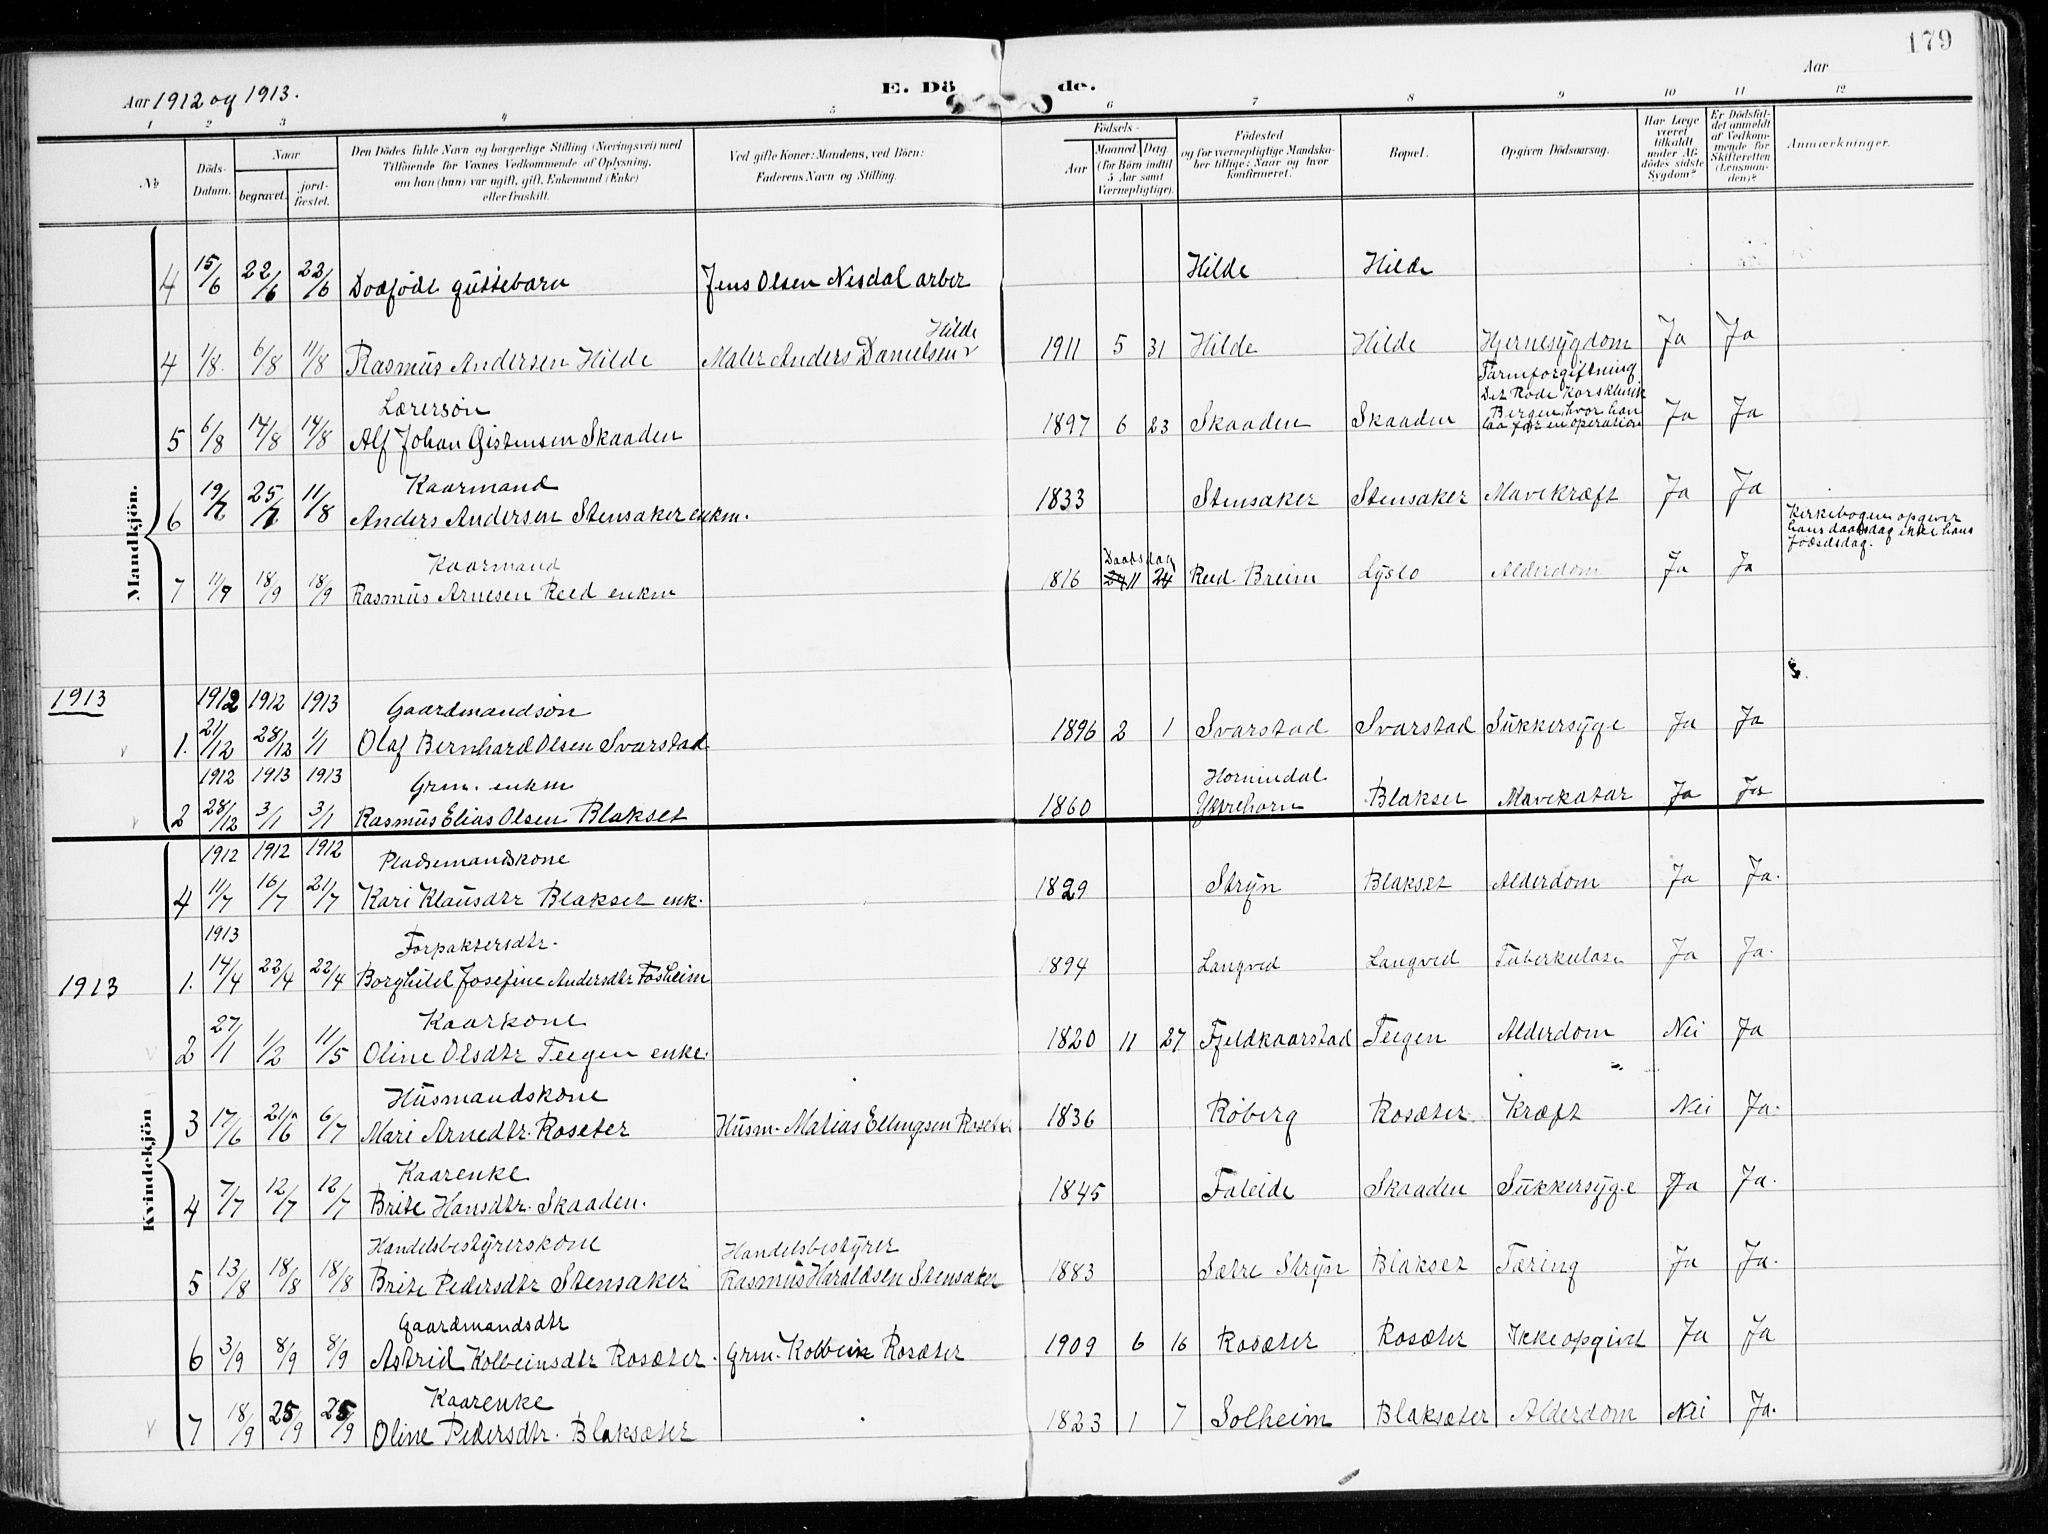 179
Aar 1912 og 1913.
E. Dö de.
Aar
1 2 3 4 5 6 7 8 9 10 11 12
No
Döds-Datum.
Naar
begravet.
jordfæstet.
Den Dödes fulde Navn og borgerlige Stilling (Næringsvei) med
Tilföiende for Voxnes Vedkommende af Oplysning,
om han (hun) var ugift, gift, Enkemand (Enke)
eller fraskilt.
Ved gifte Koner: Mandens, ved Börn:
Faderens Navn og Stilling.
Födsels-
Aar
Maaned Dag
(for Börn indtil
5 Aar samt
Værnepligtige).
Födested
og for værnepligtige Mandskaber tillige: Naar og hvor
konfirmeret.
Bopæl.
Opgiven Dödsaarsag.
Har Læge
været
tilkaldt
under Afdödes sidste
Sygdom?
Er Dödsfaldet anmeldt
af Vedkommende for
Skifteretten
(Lensmanden)?
Anmærkninger.
Mandkjön.
4 15/6 22/6 22/6 Dodfödt guttebarn Jens Olsen Nesdal arber Hilde Hilde
Hilde
4 1/8 6/8 11/8 Rasmus Andersen Hilde Maler Anders Danielsen 1911 5 31 Hilde Hilde Hjernesygdom Ja Ja
Lærersön
Tarmforgiftning
Det Rode Korsklinik
Bergen, hvor han
laa for en operation
5 6/8 14/8 14/8 Alf Johan Gistensen Skaaden 1897 6 23 Skaaden Skaaden Ja Ja
Kaarmand
6 19/7 25/7 11/8 Anders Andersen Stensaker enkm. 1833 Stensaker Stensaker Mavekræft Ja Ja
Kirkebogen opgiver
hans daabsdag ikke hans
födselsdag.
Kaarmand
Daabsdag
7 11/9 18/9 18/9 Rasmus Arnesen Reed enkm 1816 11 24 Reed Breim Lyslo Alderdom Ja Ja
1913
1912 1912 1913 Gaardmandsön
1. 21/12 28/12 1/1 Olaf Bernhard Olsen Svarstad 1896 2 1 Svarstad Svarstad Sukkersyge Ja Ja
1912 1913 1913 Grm. enkm
Hornindal
2 28/12 3/1 3/1 Rasmus Elias Olsen Blakset 1860 Yttrehorn Blakset Mavekatar Ja Ja
Kvindekjön
1912 1912 1912 Pladsemandskone
4 11/7 16/7 21/7 Kari Klausdtr Blakset enk. 1829 Stryn Blakset Alderdom Ja Ja.
1913
1913 Forpaktersdtr.
1. 14/4 22/4 22/4 Borghild Josefine Andersdtr Fosheim 1894 Langved Langved Tuberkulose Ja Ja.
Kaarkone
2 27/1 1/2 11/5 Oline Olsdtr Teigen enke. 1820 11 27 Fjeldkaarstad Teigen Alderdom Nei Ja
Husmandskone
3 17/6 21/6 6/7 Mari Arnedtr. Roseter Husm. Matias Ellingsen Roseter 1836 Röberg Rosæter Kræft Nei Ja.
Kaarenke
4 7/7 12/7 12/7 Brite Hansdtr. Skaaden. 1845 Faleide Skaaden Sukkersyge Ja Ja.
Handelsbestyrerskone Handelsbestyrer
5 13/8 18/8 18/8 Brite Pedersdtr Stensaker Rasmus Haraldsen Stensaker 1883 Sætre Stryn Blakset Tæring Ja Ja.
Gaardmandsdtr
6 3/9 8/9 8/9 Astrid Kolbeinsdtr Rosæter. Grm. Kolbein Rosæter 1909 6 16 Rosæter Rosæter Ikke opgivet Ja Ja
Kaarenke
7 18/9 25/9 25/9 Oline Pedersdtr. Blaksæter 1823 1 7 Solheim Blaksæter Alderdom Nei Ja.